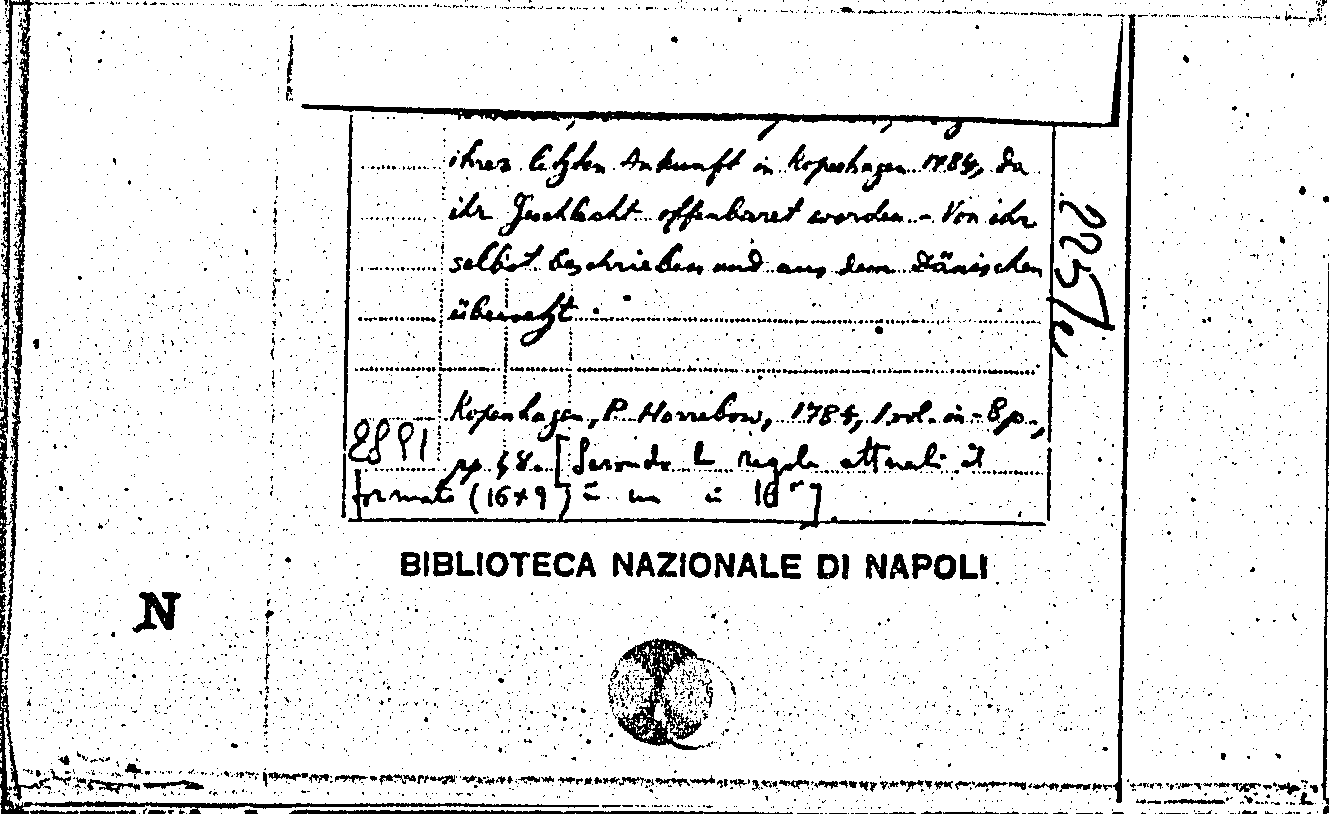 ihrer letzten Ankunft in Kopenhagen 1784, da
ihr Geschlecht offenbaret worden - Von ihr
selbst beschrieben und aus dem Dänischen
übersetzt.
Kopenhagen, P. Horrebow, 1784, 1 vol. in-8p.,
2891
pp. 48. [Secondo le regole attuali il
formato (16x9) è un in 16°]
BIBLIOTECA NAZIONALE DI NAPOLI
N